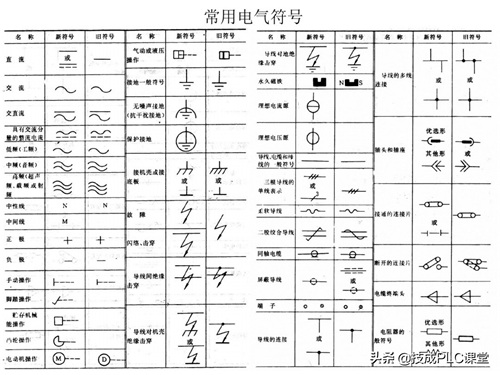 常用电气符号
名称 新符号 旧符号
直流
或
交流
交直流
具有交流分
量的整流电流
低频(工频)
中频(音频)
高频(超声
频、载频或射
频)
中性线 N N
中间线 M
正极 + +
负极 − −
手动操作
脚踏操作
贮存机械
能操作
凸轮操作
电动机操作 M D
名称 新符号 旧符号
气动或液压
操作
接地一般符号
无噪声接地
(抗干扰接地)
保护接地
接机壳或接
底板
或
或
故障
闪络、击穿
导线间绝缘
击穿
导线对机壳
绝缘击穿
或
或
名称 新符号 旧符号
导线对地绝
缘击穿
永久磁铁 N S
理想电流源
理想电压源
导线、电缆和母
线的一般符号
三根导线的
单线表示
或
或
柔软导线
二股绞合导线
同轴电缆
屏蔽导线
或
端子
导线的连接
或
名称 新符号 旧符号
导线的多线
连接
或
或
插头和插座
优选形
其他形
或
接通的连接片
或
断开的连接片
电缆终端头
电阻器的
一般符号
优选形
其他形
头条 @技成PLC课堂